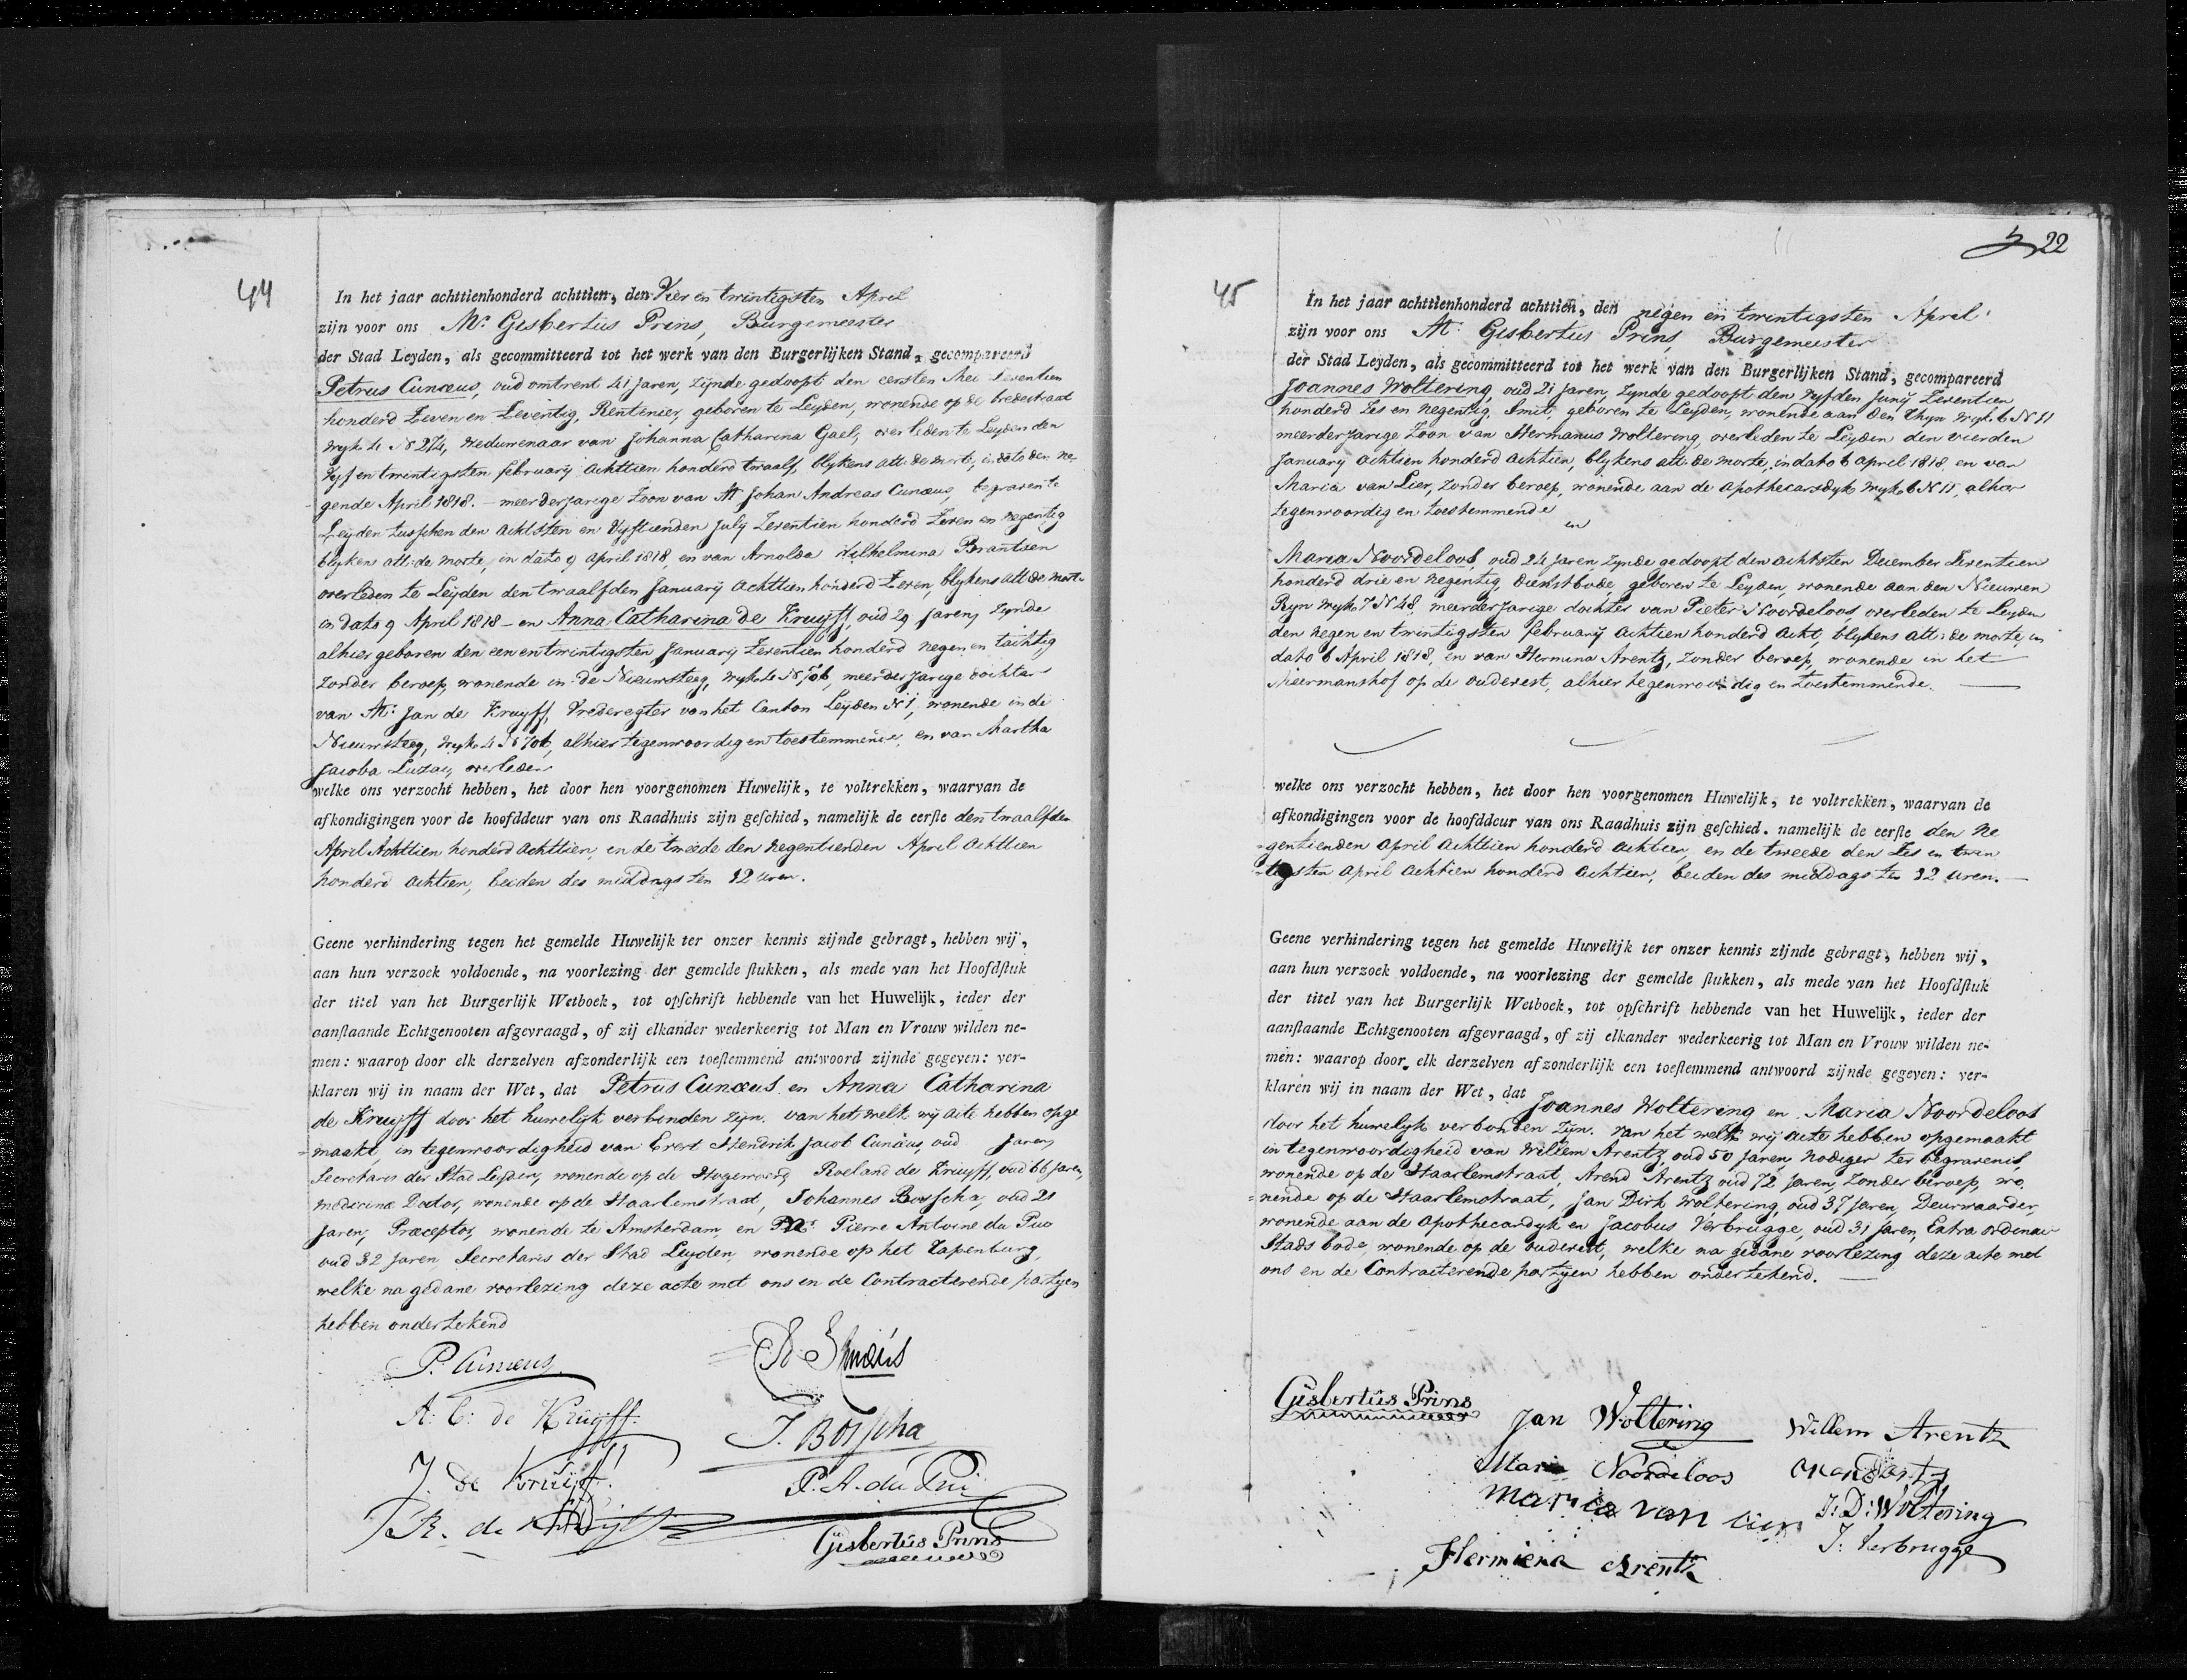 44
In het jaar achttienhonderd achttien, den Vier en twintigsten April
zijn voor ons Mr. Gesbertus Prins, Burgemeester
der Stad Leyden, als gecommitteerd tot het werk van den Burgerlijken Stand, gecompareerd
Petrus Cunæus, oud omtrent 41 jaren, zijnde gedoopt den eersten Mei Zeventien
honderd Zeven en Zeventig, Rentenier, geboren te Leyden, wonende op de bredestraat
Wyk 4 N 274, Weduwenaar van Johanna Catharina Gael, overleden te Leyden den
Vyf en twintigsten february achttien honderd twaalf, blykens att: de morte, in dato den ne-
gende April 1818. - meerderjarige Zoon van Mr Johan Andreas Cunæus, begraven te
Leyden tusschen den achtsten en Vyftienden July Zeventien honderd Zeven en negentig
blykens att: de morte, in dato 9 April 1818, en van Arnolda Wilhelmina Brantsen
overleden te Leyden den twaalfden January achttien honderd Zeven, blykens att de mort.
in dato 9 April 1818 - en Anna Catharina de Kruyff, oud 29 jaren, zynde
alhier geboren den een en twintigsten January Zeventien honderd negen en tachtig
Zonder beroep, wonende in de Nieuwsteeg, wyk 4 N 706, meerderjarige dochter
van Mr. Jan de Kruyff, Vrederegter van het Canton Leyden N 1, wonende in de
Nieuwsteeg, Wyk 4 N 706, alhier tegenwoordig en toestemmende, en van Martha
Jacoba Luzac, overleden
welke ons verzocht hebben, het door hen voorgenomen Huwelijk, te voltrekken, waarvan de
afkondigingen voor de hoofddeur van ons Raadhuis zijn geschied, namelijk de eerste den twaalfden
April Achttien honderd achttien, en de tweede den negentienden April achttien
honderd achtien, beiden des middags ten 12 uren.
Geene verhindering tegen het gemelde Huwelijk ter onzer kennis zijnde gebragt, hebben wij,
aan hun verzoek voldoende, na voorlezing der gemelde stukken, als mede van het Hoofdstuk
der titel van het Burgerlijk Wetboek, tot opschrift hebbende van het Huwelijk, ieder der
aanstaande Echtgenooten afgevraagd, of zij elkander wederkeerig tot Man en Vrouw wilden ne-
men: waarop door elk derzelven afzonderlijk een toestemmend antwoord zijnde gegeven: ver-
klaren wij in naam der Wet, dat Petrus Cunæus en Anna Catharina
de Kruyff door het huwelyk verbonden zyn. van het welk wy acte hebben opge
=maakt, in tegenwoordigheid van Evert Hendrik Jacob Cunæus, oud jaren,
Secretaris der Stad Leyden, wonende op de Hogewoerd, Roeland de Kruyff, oud 66 jaren,
medicinæ Doctor, wonende op de Haarlemstraat, Johannes Bosscha, oud 21
jaren, Præceptor, wonende te Amsterdam, en Mr. Pierre Antoine du Pui
oud 32 jaren, Secretaris der Stad Leyden, wonende op het Rapenburg,
welke na gedane voorlezing deze acte met ons en de Contracterende partyen
hebben ondertekend
P. Cunæus
A: C: de Kruyff.
J. Bosscha
J. de Kruijff.
P. A. du Pui
R. de Kruijff
Gisbertus Prins
22
45
In het jaar achttienhonderd achttien, den negen en twintigsten April
zijn voor ons Mr. Gesbertus Prins, Burgemeester
der Stad Leyden, als gecommitteerd tot het werk van den Burgerlijken Stand, gecompareerd
Joannes Woltering, oud 21 jaren, zynde gedoopt den Vyfden Juny Zeventien
honderd Zes en negentig, Smit, geboren te Leyden, wonende aan den Rhyn wyk 6 N 11
meerderjarige Zoon van Hermanus Woltering overleden te Leyden den vierden
January achtien honderd achtien, blykens att: de morte, in dato 6 april 1818, en van
Maria van Lier, zonder beroep, wonende aan de apothecarsdyk wyk 6 N 11, alhier
tegenwoordig en toestemmende
en
Maria Noordeloos, oud 24 jaren zynde gedoopt den achtsten December Zeventien
honderd drie en negentig, dienstbode, geboren te Leyden, wonende aan den Nieuwen
Ryn wyk 7 N 48, meerderjarige dochter van Pieter Noordeloos, overleden te Leyden
den negen en twintigsten february achtien honderd acht, blykens att: de morte, in
dato 6 April 1818, en van Hermina Arentz, zonder beroep, wonende in het
Meermanshof op de oudevest, alhier tegenwoordig en toestemmende.
welke ons verzocht hebben, het door hen voorgenomen Huwelijk, te voltrekken, waarvan de
afkondigingen voor de hoofddeur van ons Raadhuis zijn geschied. namelijk de eerste den ne
=gentienden april achttien honderd achtien, en de tweede den Zes en twin
=tigsten april achtien honderd achtien, beiden des middags ten 12 uren.
Geene verhindering tegen het gemelde Huwelijk ter onzer kennis zijnde gebragt, hebben wij,
aan hun verzoek voldoende, na voorlezing der gemelde stukken, als mede van het Hoofdstuk
der titel van het Burgerlijk Wetboek, tot opschrift hebbende van het Huwelijk, ieder der
aanstaande Echtgenooten afgevraagd, of zij elkander wederkeerig tot Man en Vrouw wilden ne-
men: waarop door elk derzelven afzonderlijk een toestemmend antwoord zijnde gegeven: ver-
klaren wij in naam der Wet, dat Joannes Woltering en Maria Noordeloos
door het huwelyk verbonden zyn. van het welk wy acte hebben opgemaakt
in tegenwoordigheid van Willem Arentz, oud 50 jaren, nodiger ter begravenis,
wonende op de Haarlemstraat, Arend Arentz oud 72 jaren, zonder beroep, wo
=nende op de Haarlemstraat, Jan Dirk Woltering, oud 37 jaren, Deurwaarder,
wonende aan de apothecardyk en Jacobus Verbrugge, oud 31 jaren, Extra ordenair
Stads bode, wonende op de oudevest, welke na gedane voorlezing deze acte met
ons en de Contracterende partyen hebben ondertekend.
Gisbertus Prins
Jan Woltering
Willem Arentz
Maria Noordeloos
Maria van Lier
J: D: Woltering
J: Verbrugge
Hermiena Arentz